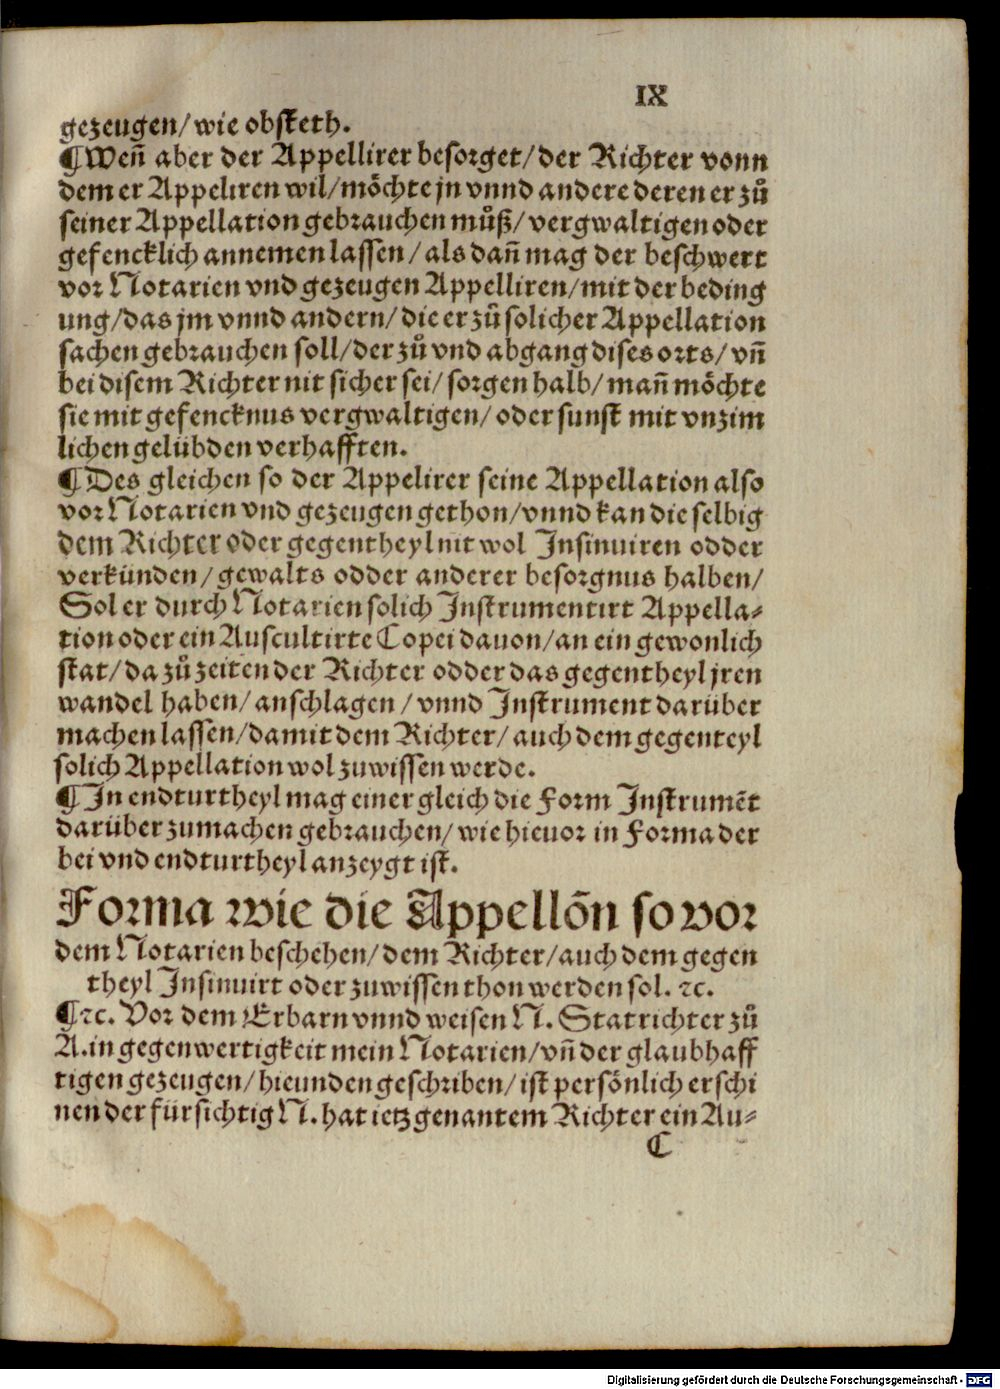 IX
gezeugen/ wie obsteth.
¶ Weñ aber der Appellirer besorget/ der Richter vonn
dem er Appeliren wil/ möchte jn vnnd andere deren er zů
seiner Appellation gebrauchen můß/ vergwaltigen oder
gefencklich annemen lassen/ als dañ mag der beschwert
vor Notarien vnd gezeugen Appelliren/ mit der beding
ung/ das jm vnnd andern/ die er zů solicher Appellation
sachen gebrauchen soll/ der zů vnd abgang dises orts/ vñ
bei disem Richter nit sicher sei/ sorgen halb/ mañ möchte
sie mit gefencknus vergwaltigen/ oder sunst mit vnzim
lichen gelübden verhafften.
¶ Des gleichen so der Appelirer seine Appellation also
vor Notarien vnd gezeugen gethon/ vnnd kan die selbig
dem Richter oder gegentheyl nit wol Insinuiren odder
verkünden/ gewalts odder anderer besorgnus halben/
Sol er durch Notarien solich Instrumentirt Appella⸗
tion oder ein Auscultirte Copei dauon/ an ein gewonlich
stat/ da zů zeiten der Richter odder das gegentheyl jren
wandel haben/ anschlagen/ vnnd Instrument darüber
machen lassen/ damit dem Richter/ auch dem gegenteyl
solich Appellation wol zuwissen werde.
¶ In endturtheyl mag einer gleich die Form Instrumēt
darüber zumachen gebrauchen/ wie hieuor in Forma der
bei vnd endturtheyl anzeygt ist.
Forma wie die Appellõn so vor
dem Notarien beschehen/ dem Richter/ auch dem gegen
theyl Insinuirt oder zuwissen thon werden sol. ꝛc.
¶ ꝛc. Vor dem Erbarn vnnd weisen N. Statrichter zů
A. in gegenwertigkeit mein Notarien/ vñ der glaubhaff
tigen gezeugen/ hieunden geschriben/ ist persönlich erschi
nen der fürsichtig N. hat ietz genantem Richter ein Au⸗
C
Digitalisierung gefördert durch die Deutsche Forschungsgemeinschaft - DFG